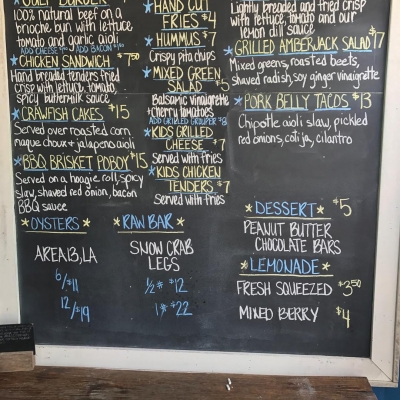 GULF BURGER
100% natural beef on a
brioche bun with lettuce,
tomato and garlic aioli
ADD CHEESE ADD BACON
CHICKEN SANDWICH $7.50
Hand breaded tenders fried
crisp with lettuce, tomato,
spicy buttermilk sauce
CRAWFISH CAKES $15
Served over roasted corn
maque choux + jalapeno aioli
BBQ BRISKET POBOY $15
Served on a hoagie roll, spicy
slaw, shaved red onion, bacon
BBQ sauce
OYSTERS
AREA 13, LA
6/$11
12/$19
HAND CUT
FRIES $4
HUMMUS $7
Crispy pita chips
MIXED GREEN
SALAD $5
Balsamic vinaigrette
+ Cherry tomatoes
ADD GRILLED GROUPER $8
KIDS GRILLED
CHEESE $7
Served with fries
KIDS CHICKEN
TENDERS $7
Served with fries
RAW BAR
SNOW CRAB
LEGS
1/2# $12
1# $22
Lightly breaded and fried crisp
with lettuce, tomato and our
lemon dill sauce
GRILLED AMBERJACK SALAD $17
Mixed greens, roasted beets,
shaved radish, soy ginger vinaigrette
PORK BELLY TACOS $13
Chipotle aioli slaw, pickled
red onions, cotija, cilantro
DESSERT $5
PEANUT BUTTER
CHOCOLATE BARS
LEMONADE
FRESH SQUEEZED $3.50
MIXED BERRY $4